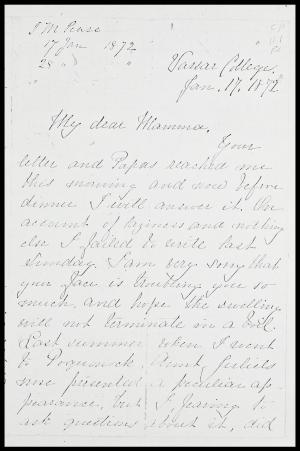 J M Pease
17 Jan 1872
28 " "
Vassar College.
Jan. 17. 1872
My dear Mamma,
Your
letter and Papas reached me
this morning and now before
dinner I will answer it. On
account of laziness and nothing
else I failed to write last
Sunday. I am very sorry that
your face is troubling you so
much, and hope the swelling
will not terminate in a boil.
Last summer when I went
to Poquonock, Aunt Juliets
nose presented a peculiar ap-
pearance, but I, fearing to
ask questions about it, did